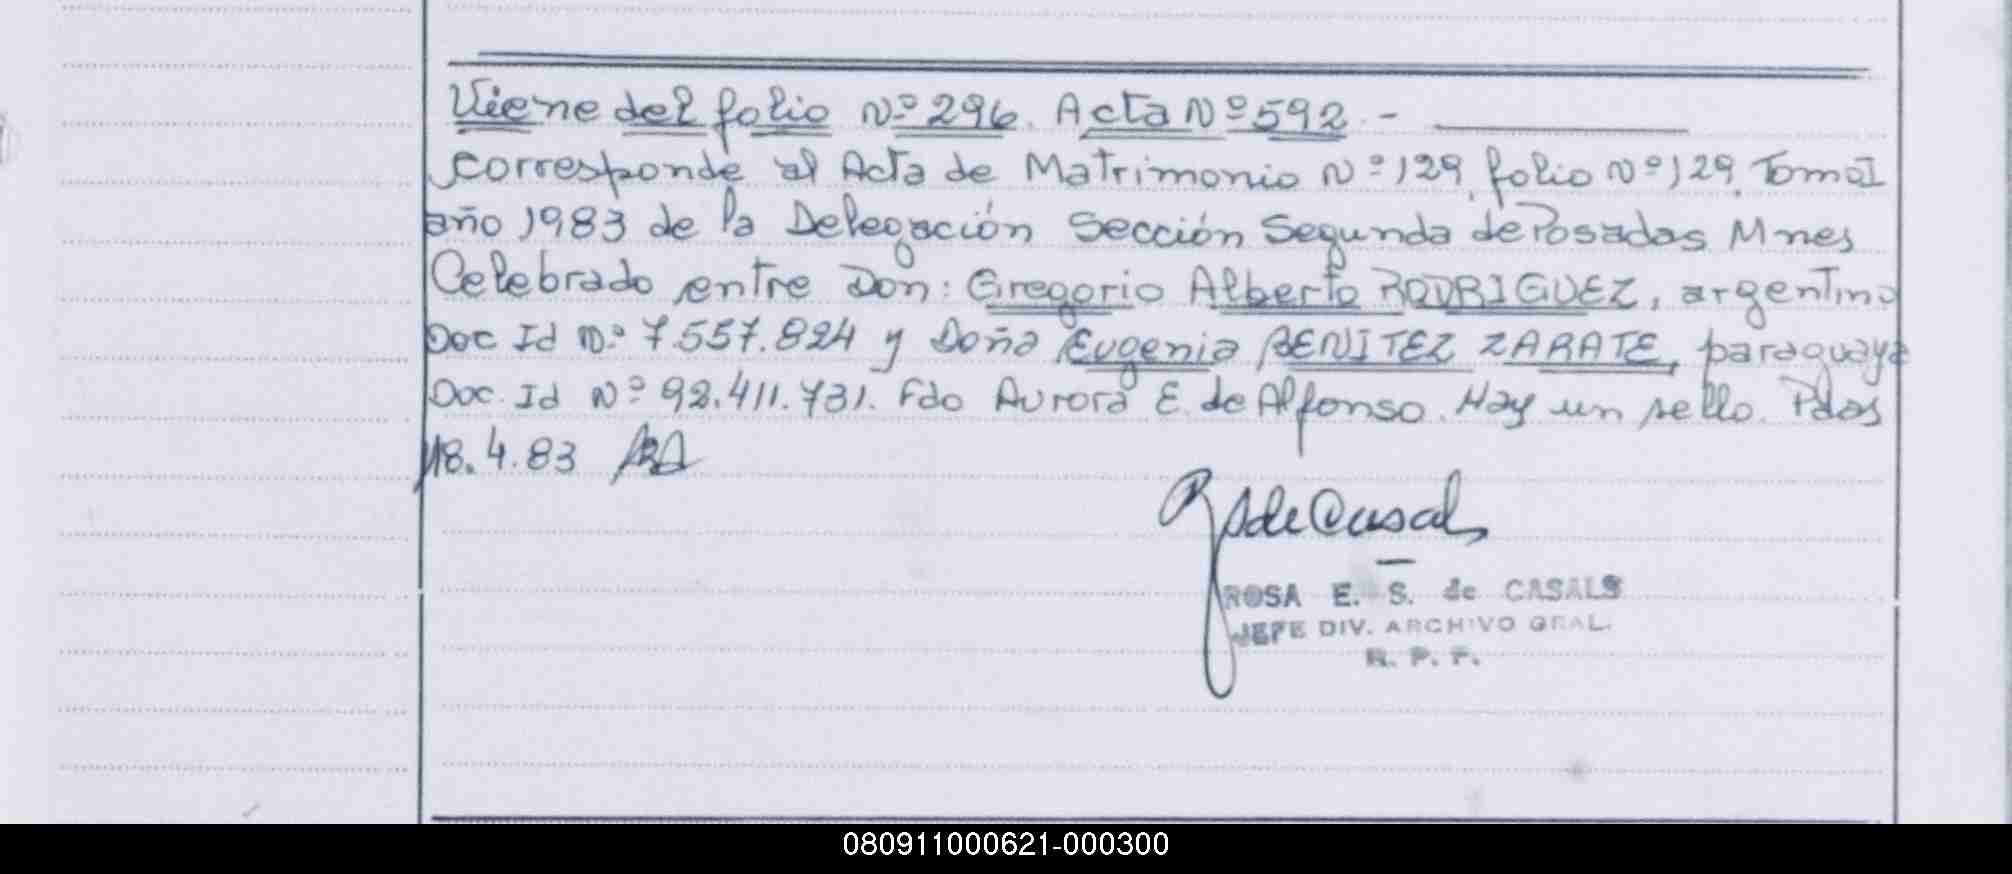 Viene del folio Nº 296. Acta Nº 592 -
Corresponde al Acta de Matrimonio Nº 129, folio Nº 129, Tomo I
año 1983 de la Delegación Sección Segunda de Posadas Mnes
Celebrado entre Don: Gregorio Alberto RODRIGUEZ, argentino
Doc Id Nº 7.557.824 y Doña Eugenia BENITEZ ZARATE, paraguaya
Doc. Id Nº 92.411.731. Fdo Aurora E. de Alfonso. Hay un sello. Pdas
18.4.83
RSdeCasals
ROSA E. S. de CASALS
JEFE DIV. ARCHIVO GRAL.
R. P. P.
080911000621-000300